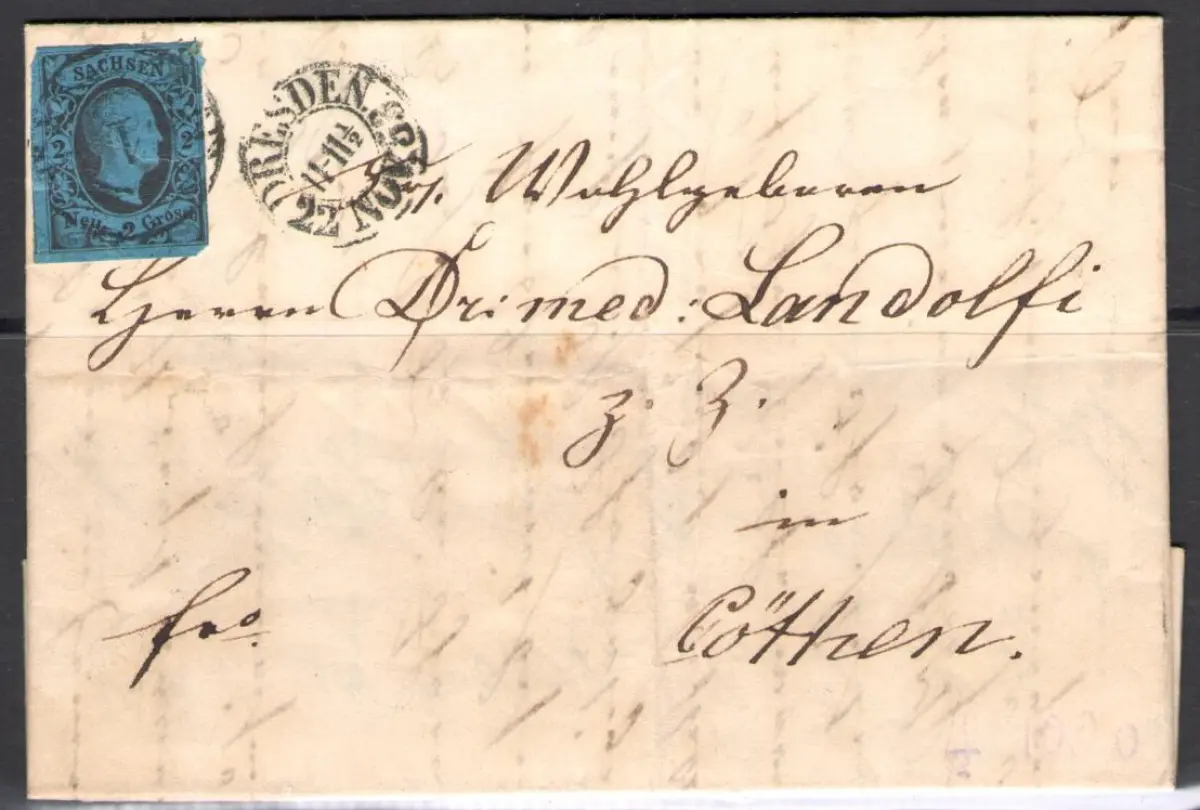 SACHSEN
2 2
Neu- 2 Grosch
DRESDEN
11-11½
22 NOV
Sr. Wohlgeboren
Herrn Dr: med: Landolfi
z. Z.
in
fro. Cöthen.